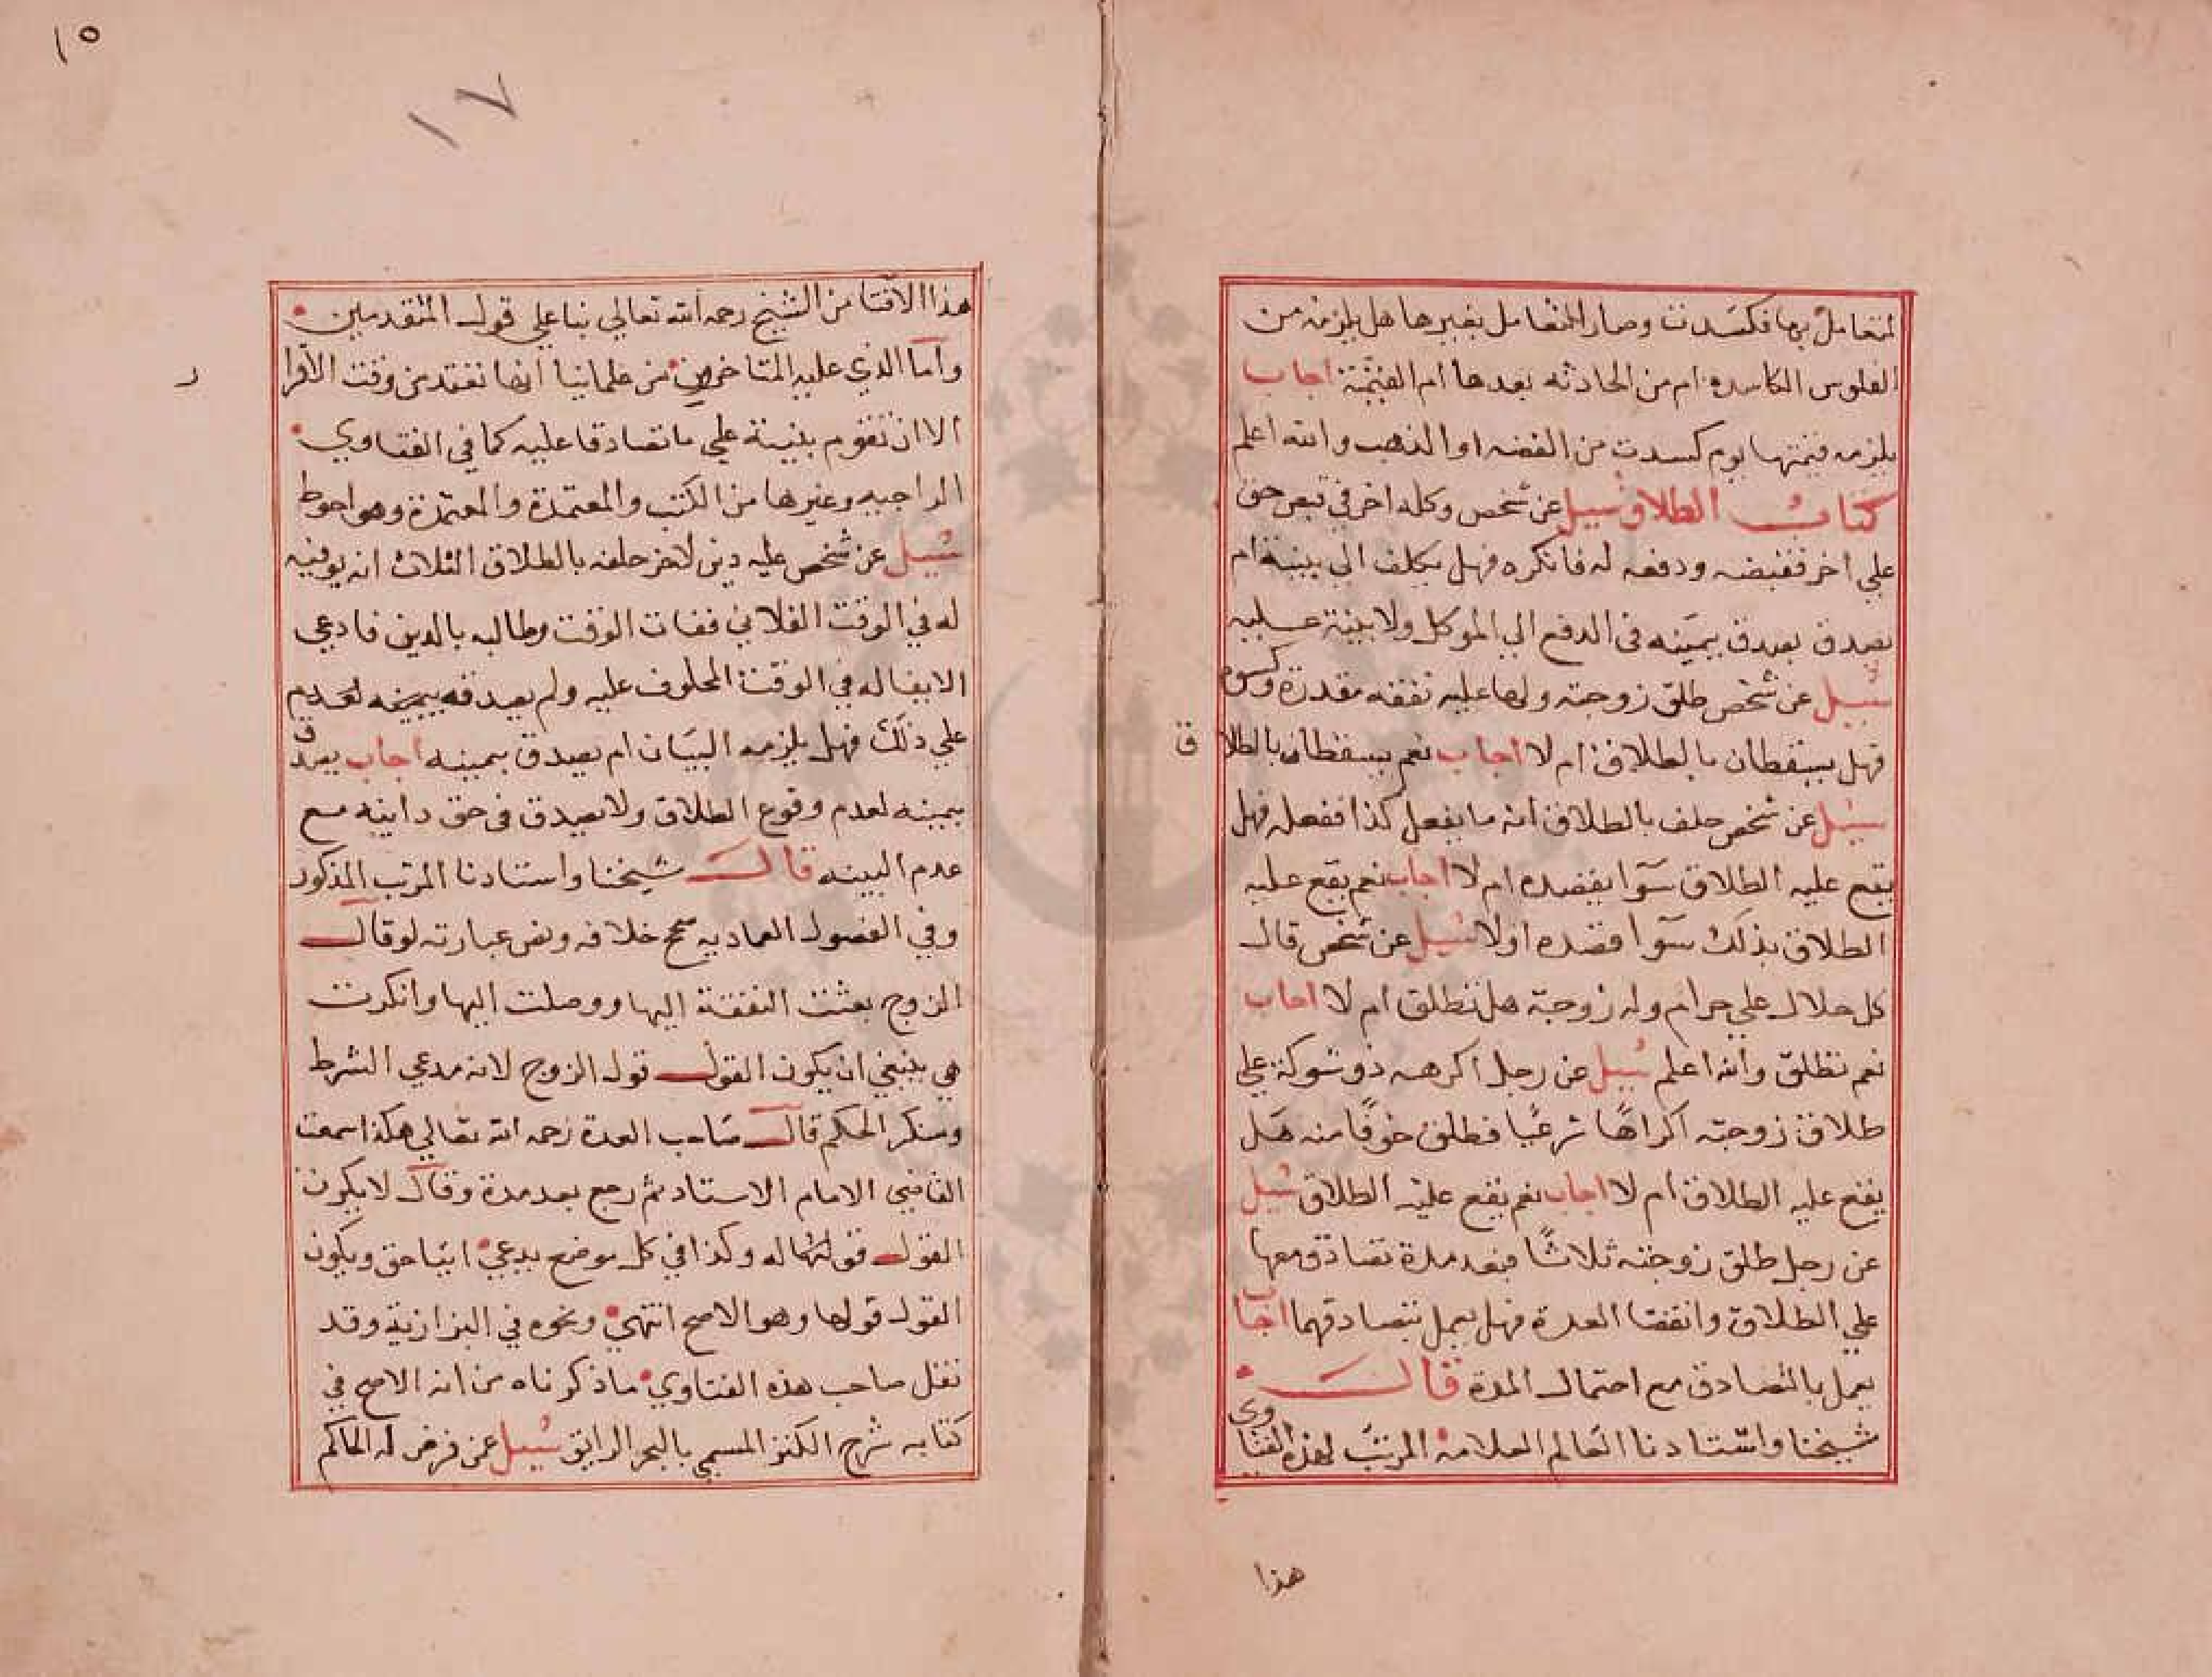 لمتعامل بها فكسدت وصار المتعامل بغيرها هل يلزمه من
الفلوس الكاسدة ام من الحادثه بعدها ام القيمة اجاب
يلزمه قيمتها يوم كسدت من الفضه او الذهب والله اعلم
كتاب الطلاق سيل عن شخص وكله اخر في قبض حق
علي اخر فقبضه ودفعه له فانكره فهل يكلف الي بينة ام
يصدق يصدق بيمينه في الدفع الي الموكل ولا بينة عليه
سيل عن شخص طلق زوجته ولها عليه نفقه مقدرة وكسوه
فهل يسقطان بالطلاق ام لا اجاب نعم يسقطان بالطلاق
سيل عن شخص حلف بالطلاق انه ما يفعل كذا ففعله فهل
يقع عليه الطلاق سوآ بقصده ام لا اجاب نعم يقع عليه
الطلاق بذلك سوآ قصده اولا سيل عن شخص قال
كل حلال علي حرام وله زوجة هل تطلق ام لا اجاب
نعم تطلق والله اعلم سيل عن رجل اكرهه ذو شوكة علي
طلاق زوجته اكراهًا شرعيا فطلق خوفًا منه هل
يقع عليه الطلاق ام لا اجاب نعم يقع عليه الطلاق سيل
عن رجل طلق زوجته ثلاثًا فبعد مدة تصادق معها
علي الطلاق وانقضا العدة فهل يعمل بتصادقهما اجاب
يعمل بالتصادق مع احتمال المدة قال
شيخنا واستادنا العالم العلامة المرتب لهذه الفتاوي
هذا
١٥
١٧
هذا الافتا من الشيخ رحمه الله تعالي بنا علي قول المتقدمين
واما الذي عليه المتاخرين من علمائنا انها تعتد من وقت الاقرار
الا ان تقوم بينة علي ما تصادقا عليه كما في الفتاوي
الراجبيه وغيرها من الكتب والمعتمدة والمعتمدة وهو احوط
سيل عن شخص عليه دين لاخر حلفه بالطلاق الثلاث انه يوفيه
له في الوقت الفلاني ففات الوقت وطالبه بالدين فادعي
الايفا له في الوقت المحلوف عليه ولم يصدقه بيمينه لغريم
علي ذلك فهل يلزمه البيان ام يصدق بيمينه اجاب يصدق
بيمينه لعدم وقوع الطلاق ولا يصدق في حق داينه مع
عدم البينه قال شيخنا واستادنا المرتب المذكور
وفي الفصول العماديه صحح خلافه ونص عبارته لو قال
الزوج بعثت النفقة اليها ووصلت اليها وانكرت
هي ينبغي ان يكون القول قول الزوج لانه مدعي الشرط
ومنكر الحكم قال صاحب العدة رحمه الله تعالي هكذا سمعت
القاضي الامام الاستاد ثم رجع بعد مدة وقال لا يكون
القول قوله وكذا في كل موضع يدعي ايفا حق ويكون
القول قولها وهو الاصح انتهي ونحوه في البزازية وقد
نقل صاحب هذه الفتاوي ما ذكرناه من انه الاصح في
كتابه شرح الكنز المسمي بالبحر الرايق سيل عن فرض له الحاكم